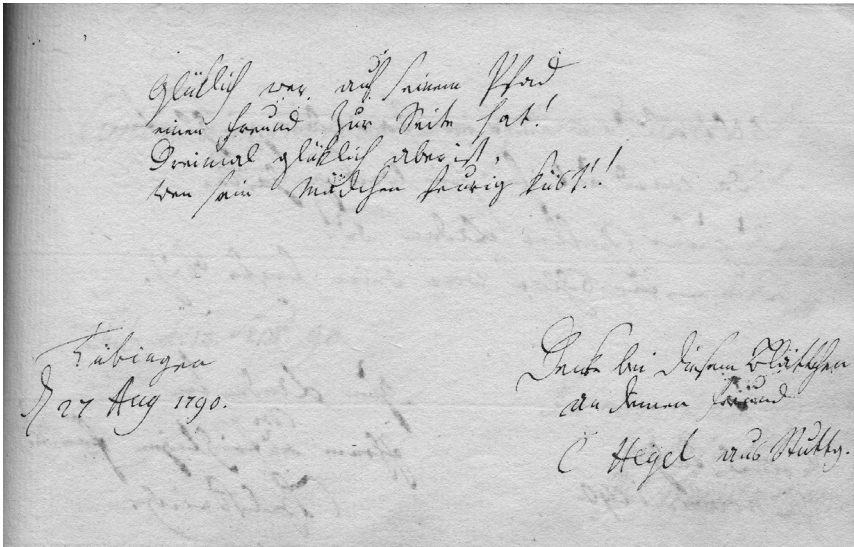 Glüklich wer auf seinem Pfad
einen Freund zur Seite hat!
Dreimal glüklich aber ist,
wen sein Mädchen feurig küst!!
Tübingen
27 Aug 1790.
Denke bei diesem Blättchen
an deinen Freund
C Hegel aus Stuttg.